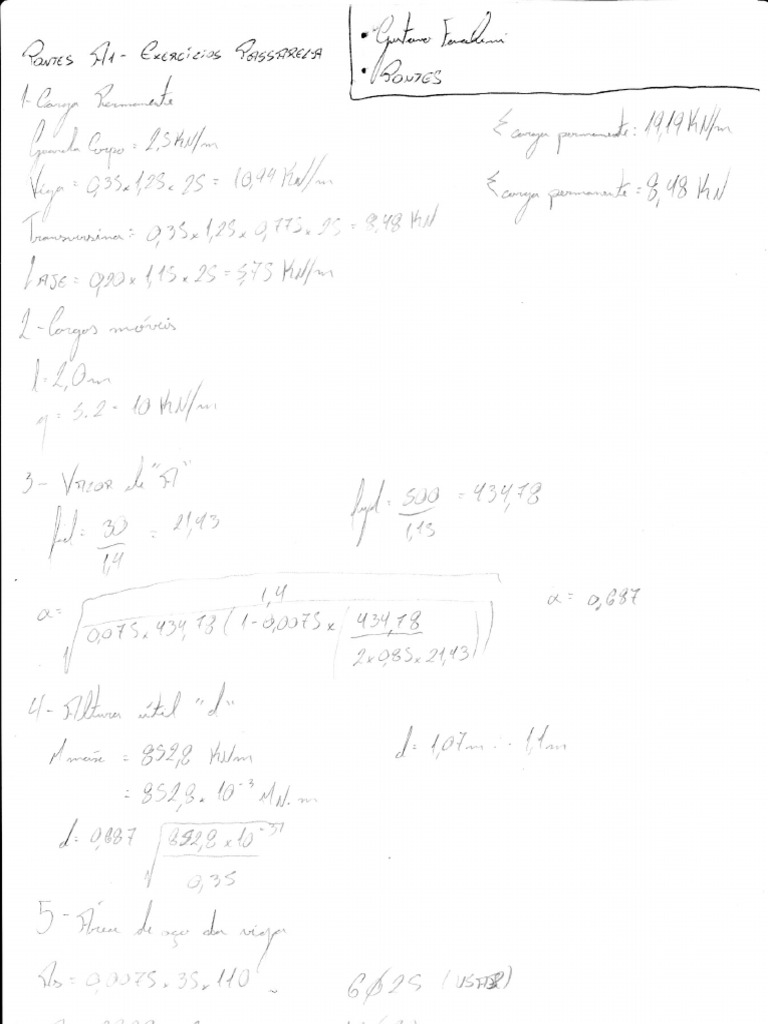 • Gustavo
• PONTES
PONTES A1 - EXERCÍCIOS PASSARELA
1- Carga Permanente
Guarda Corpo = 2,5 KN/m
Viga = 0,35 x 1,25 x 25 = 10,94 KN/m
Transversina = 0,35 x 1,25 x 0,775 x 25 = 8,48 KN
LAJE = 0,20 x 1,15 x 25 = 5,75 KN/m
Σ carga permanente: 19,19 KN/m
Σ carga permanente = 8,48 KN
2- Cargas móveis
l = 2,0 m
q = 5.2 = 10 KN/m
3- VALOR de "A"
fcd = 30/1,4 = 21,43
fyd = 500/1,15 = 434,78
α = √ 1,4 / 0,075 x 434,78 (1 - 0,0075 x (434,78 / 2 x 0,85 x 21,43))
α = 0,687
4- Altura útil "d"
M máx = 852,8 KN/m
= 852,8 x 10⁻³ MN.m
d = 0,687 √ 852,8 x 10⁻³ / 0,35
d = 1,07m ∴ 1,1m
5- Área de aço da viga
As = 0,0075 x 35 x 110
6 ϕ 25 (USAR)